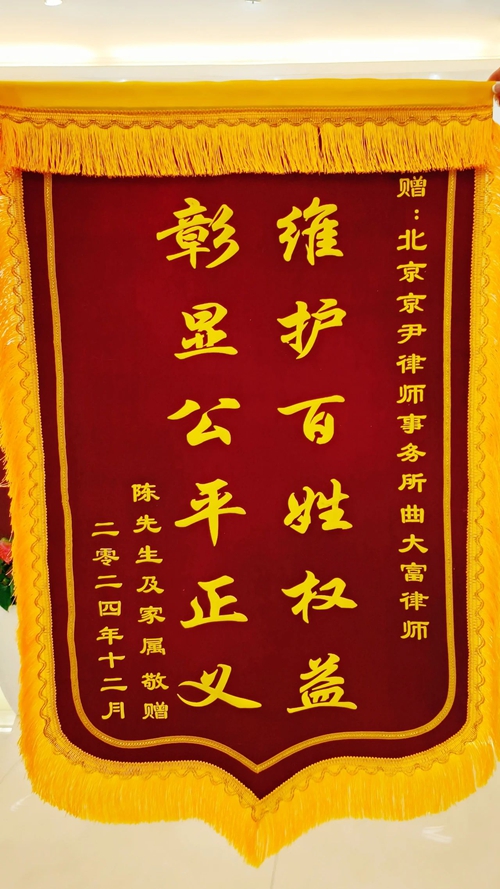 赠：北京京尹律师事务所曲大富律师
维护百姓权益
彰显公平正义
陈先生及家属敬赠
二零二四年十二月